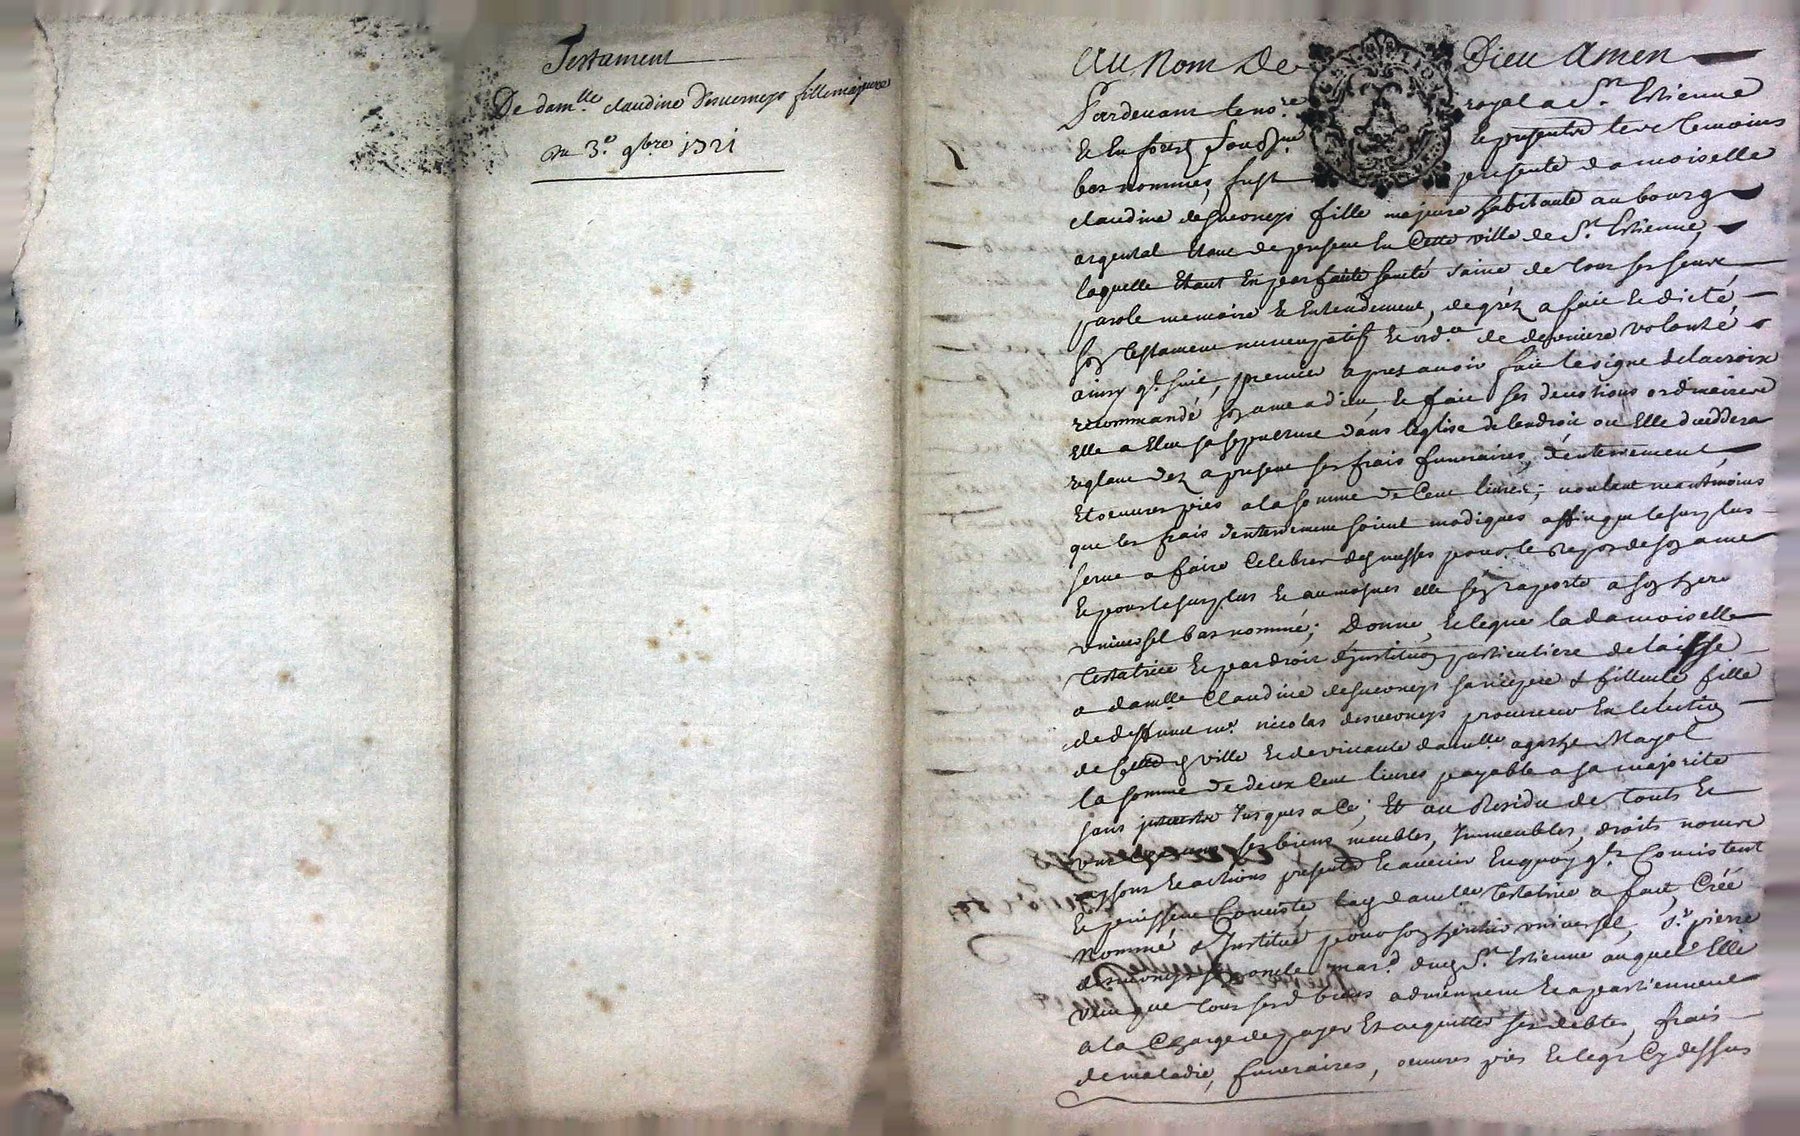 Testament
De dam.lle claudine Desverneys fille majeure
Du 3.e 9bre 1721
Au Nom De Dieu Amen
Pardevant le no.re royal a S.t Estienne
et En forest Soub.né Et presents les Temoins
bas nommés, fust presente damoiselle
claudine desverneys fille majeure habitante au bourg
argental Etant de present En Cette ville de S.t Estienne,
laquelle Etant En parfaite santé saine de tous ses sens
parole memoire Et Entendement, de gréz a fait Et dicté
son Testament nuncupatif Et ord.ce de derniere volonté
ainsy q.l suit, premier apres avoir fait le signe de la croix
recommandé son ame a dieu, Et fait ses devotions ordinaires
Elle a Elue sa sepulture dans l'eglise de lendroit ou Elle deceddera
reglant dez a present ses frais funeraires, d'enterrement,
Et oeuvres pies a la somme de Cent livres; voulant neantmoins
que les frais d'enterrement soient modiques affin que le surplus
serve a faire Celebrer des messes pour le repos de son ame
Et pour le surplus Et aumosnes elle s'en raporte a son here
universel bas nommé; Donne, Et legue la damoiselle
Testatrice Et par droit d'institution particuliere delaisse
a dam.lle Claudine desverneys sa niepce & filleule fille
de deffunt m.e nicolas desverneys procureur En l'election
de ville Et de vivante dam.lle agathe Mayol
la somme de deux Cent livres payable a sa majorité
sans Jusques a Ce; Et au Residu de touts Et
uns ses biens meubles, Immeubles, droits noms
raisons Et actions presents Et avenir En quoy q.ls Consistent
Et puissent Consister, lad. dam.lle Testatrice a fait, Créé
Nommé & Institué pour son heritier universel, S.r pierre
desverneys mar.d dud. S.t Estienne auquel Elle
veut que tous sesd. biens adviennent Et apartiennent
a la Charge de payer Et acquitter ses debtes, frais
de maladie, funeraires, oeuvres pies Et legs Cy dessus